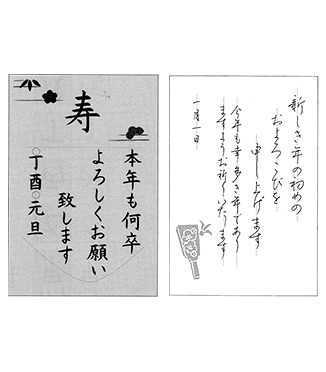 寿
本年も何卒
よろしくお願い
致します
丁酉元旦
新しき年の初めの
およろこびを
申し上げます
今年も幸多き年であり
ますようお祈りいたします
一月一日